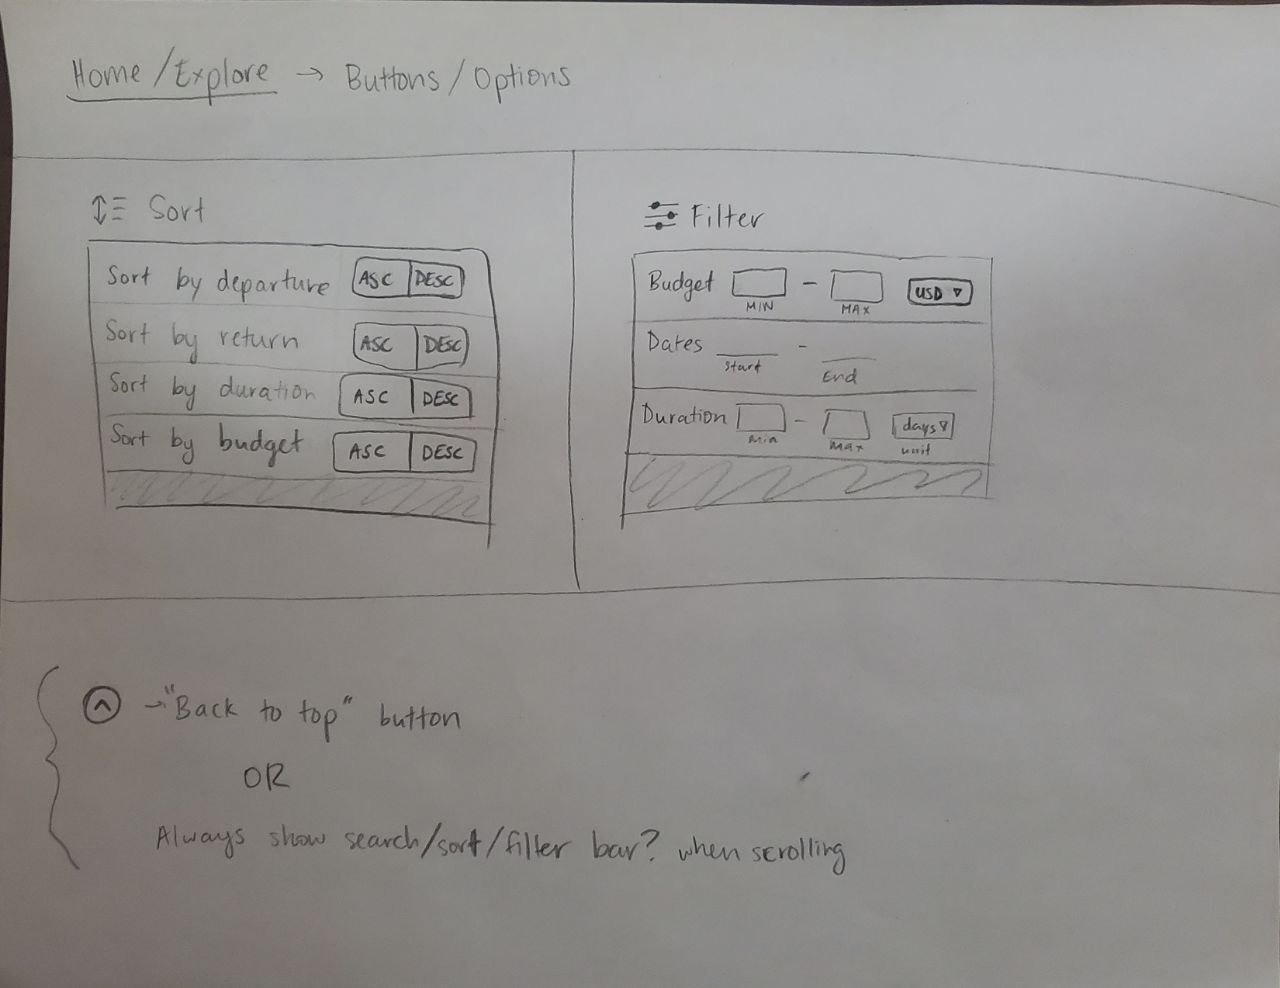 Home/Explore → Buttons/Options
Sort
Sort by departure ASC DESC
Sort by return ASC DESC
Sort by duration ASC DESC
Sort by budget ASC DESC
Filter
Budget - USD
MIN MAX
Dates -
Start End
Duration - days
Min Max unit
→ "Back to top" button
OR
Always show search/sort/filter bar? when scrolling